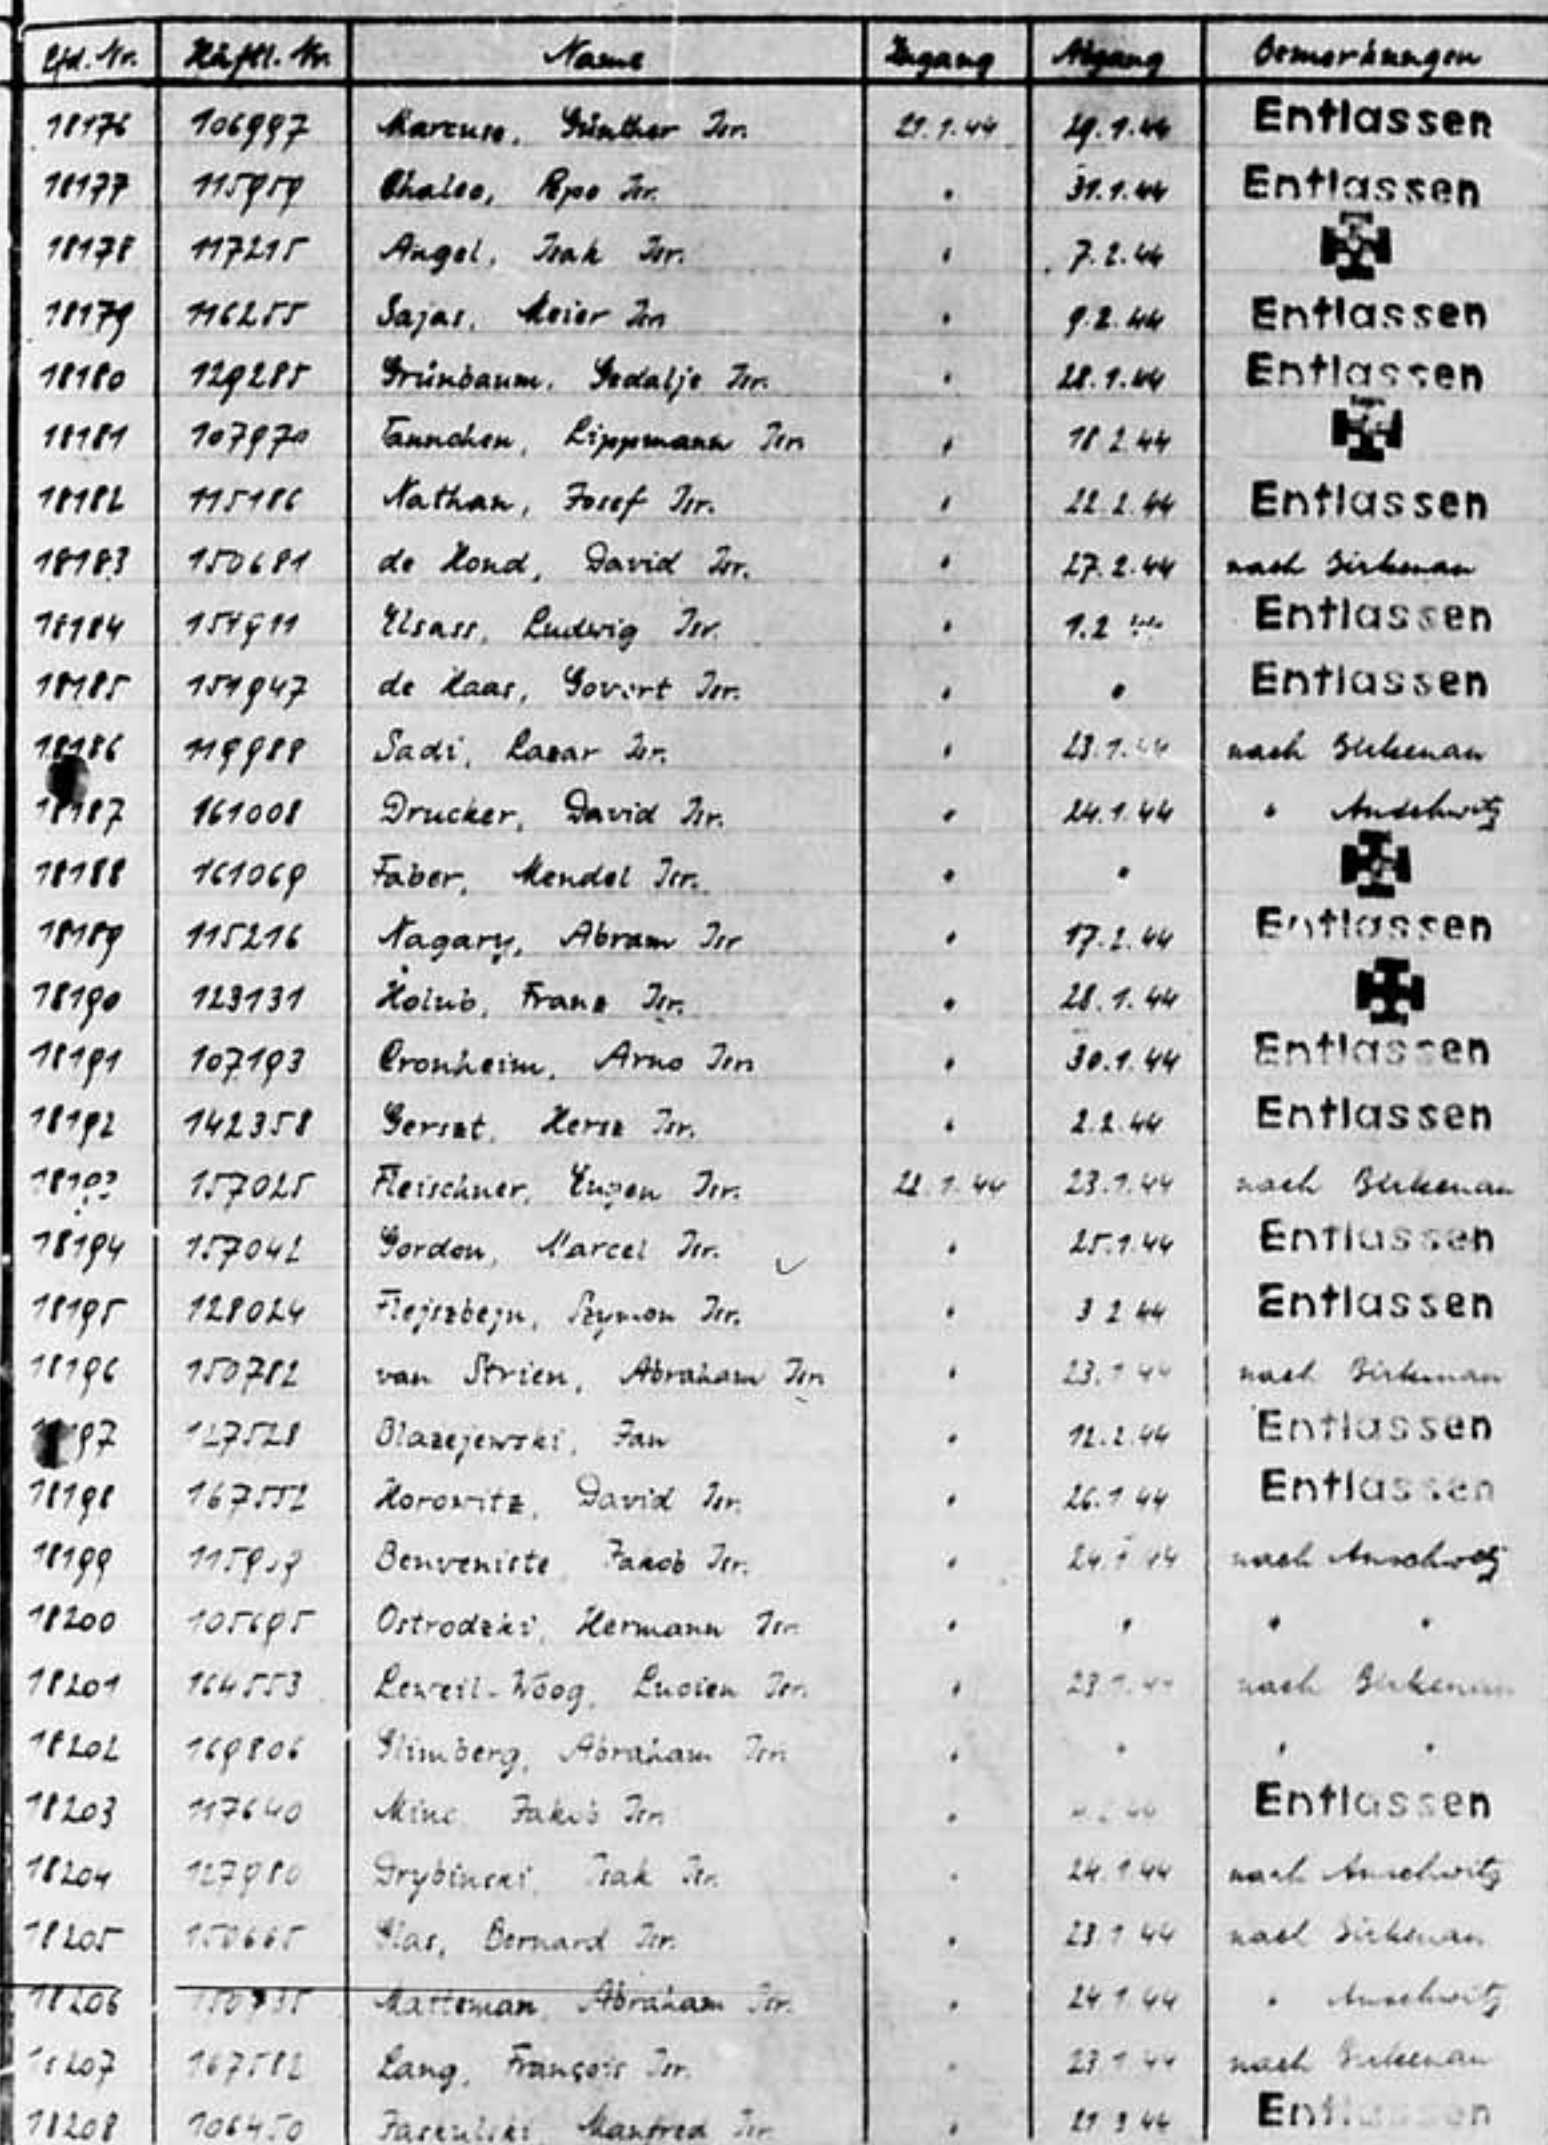 Lfd. Nr. Häftl. Nr. Name Zugang Abgang Bemerkungen
18176 106997 Marcuse, Günther Isr. 21.1.44 29.1.44 Entlassen
18177 115959 Chaleo, Pepo Isr. " 31.1.44 Entlassen
18178 117215 Angel, Isak Isr. " 7.2.44
18179 116255 Sajas, Meier Isr. " 9.2.44 Entlassen
18180 129285 Grünbaum, Gedalje Isr. " 28.1.44 Entlassen
18181 107970 Tannchen, Lippmann Isr. " 18.2.44
18182 115186 Nathan, Josef Isr. " 22.2.44 Entlassen
18183 150681 de Hond, David Isr. " 27.2.44 nach Birkenau
18184 151911 Elsass, Ludwig Isr. " 1.2 Entlassen
18185 151947 de Haas, Govert Isr. " " Entlassen
18186 119988 Sadi, Lazar Isr. " 23.1.44 nach Birkenau
18187 161008 Drucker, David Isr. " 24.1.44 " Auschwitz
18188 161069 Faber, Mendel Isr. " "
18189 115216 Nagary, Abram Isr. " 17.2.44 Entlassen
18190 123131 Holub, Franz Isr. " 28.1.44
18191 107193 Cronheim, Arno Isr. " 30.1.44 Entlassen
18192 142358 Gerszt, Hersz Isr. " 2.2.44 Entlassen
18193 157025 Fleischner, Eugen Isr. 22.1.44 23.1.44 nach Birkenau
18194 157042 Gordon, Marcel Isr. " 25.1.44 Entlassen
18195 128024 Flejszbejn, Szymon Isr. " 3.2.44 Entlassen
18196 150782 van Strien, Abraham Isr. " 23.1.44 nach Birkenau
18197 127528 Blazejewski, Jan " 12.2.44 Entlassen
18198 167552 Horowitz, David Isr. " 26.1.44 Entlassen
18199 Benveniste, Jakob Isr. " 24.1.44 nach Auschwitz
18200 105695 Ostrodzki, Hermann Isr. " " " "
18201 164553 Leweil-Woog, Lucien Isr. " 23.1.44 nach Birkenau
18202 169806 Glimberg, Abraham Isr. " " " "
18203 117640 Minc, Jakob Isr. " Entlassen
18204 127980 Drybinski, Isak Isr. " 24.1.44 nach Auschwitz
18205 150665 Glas, Bernard Isr. " 23.1.44 nach Birkenau
18206 150735 Matteman, Abraham Isr. " 24.1.44 " Auschwitz
18207 167582 Lang, François Isr. " 23.1.44 nach Birkenau
18208 106450 Manfred Isr. " 21.3.44 Entlassen